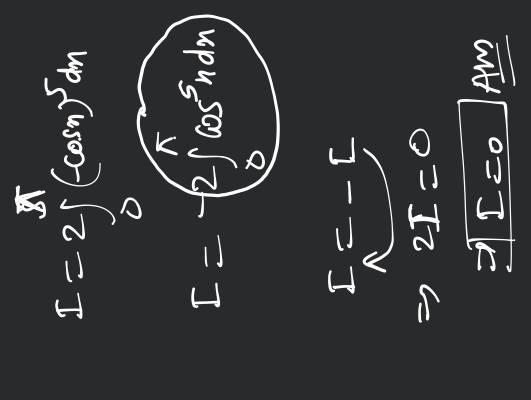 I = 2∫₀^π (-cosx)⁵ dx
I = -2∫₀^π cos⁵x dx
I = -I
⇒ 2I = 0
⇒ I = 0 Ans